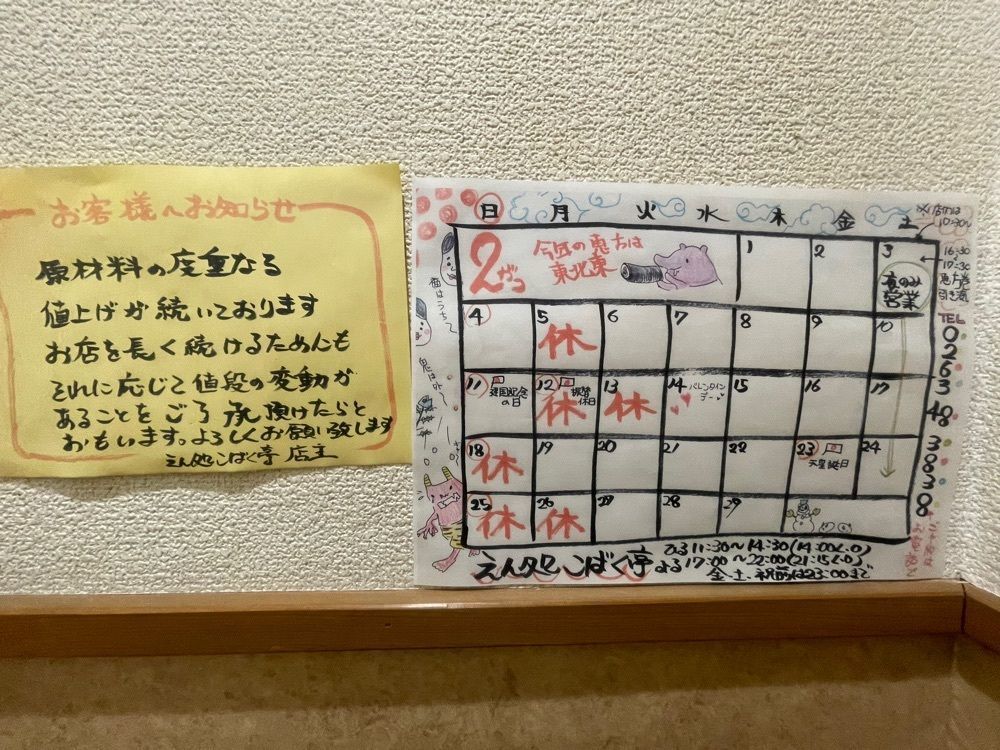 お客様へお知らせ
原材料の度重なる
値上げが続いております
お店を長く続けるためにも
それに応じて値段の変動が
あることをご了承頂けたらと
おもいます。よろしくお願い致します
こばく亭 店主
日 月 火 水 木 金 土
2がつ
今年の恵方は
東北東
1 2 3
夜のみ
営業
16:30
17:30
恵方巻
引き渡
TEL
0263 48 3830
4 5 6 7 8 9 10
休
11 12 13 14 15 16 17
建国記念
の日
振替
休日
休 休
バレンタイン
デー
18 19 20 21 22 23 24
休
天皇誕生日
25 26 27 28 29
休 休
福はうち〜
鬼は外〜
こばく亭
ひる 11:30〜14:30(14:00L.O)
よる 17:00〜22:00(21:15L.O)
金・土・祝前は23:00まで